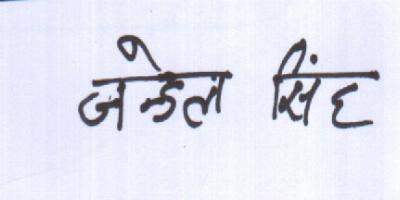 जन्डेल सिंह